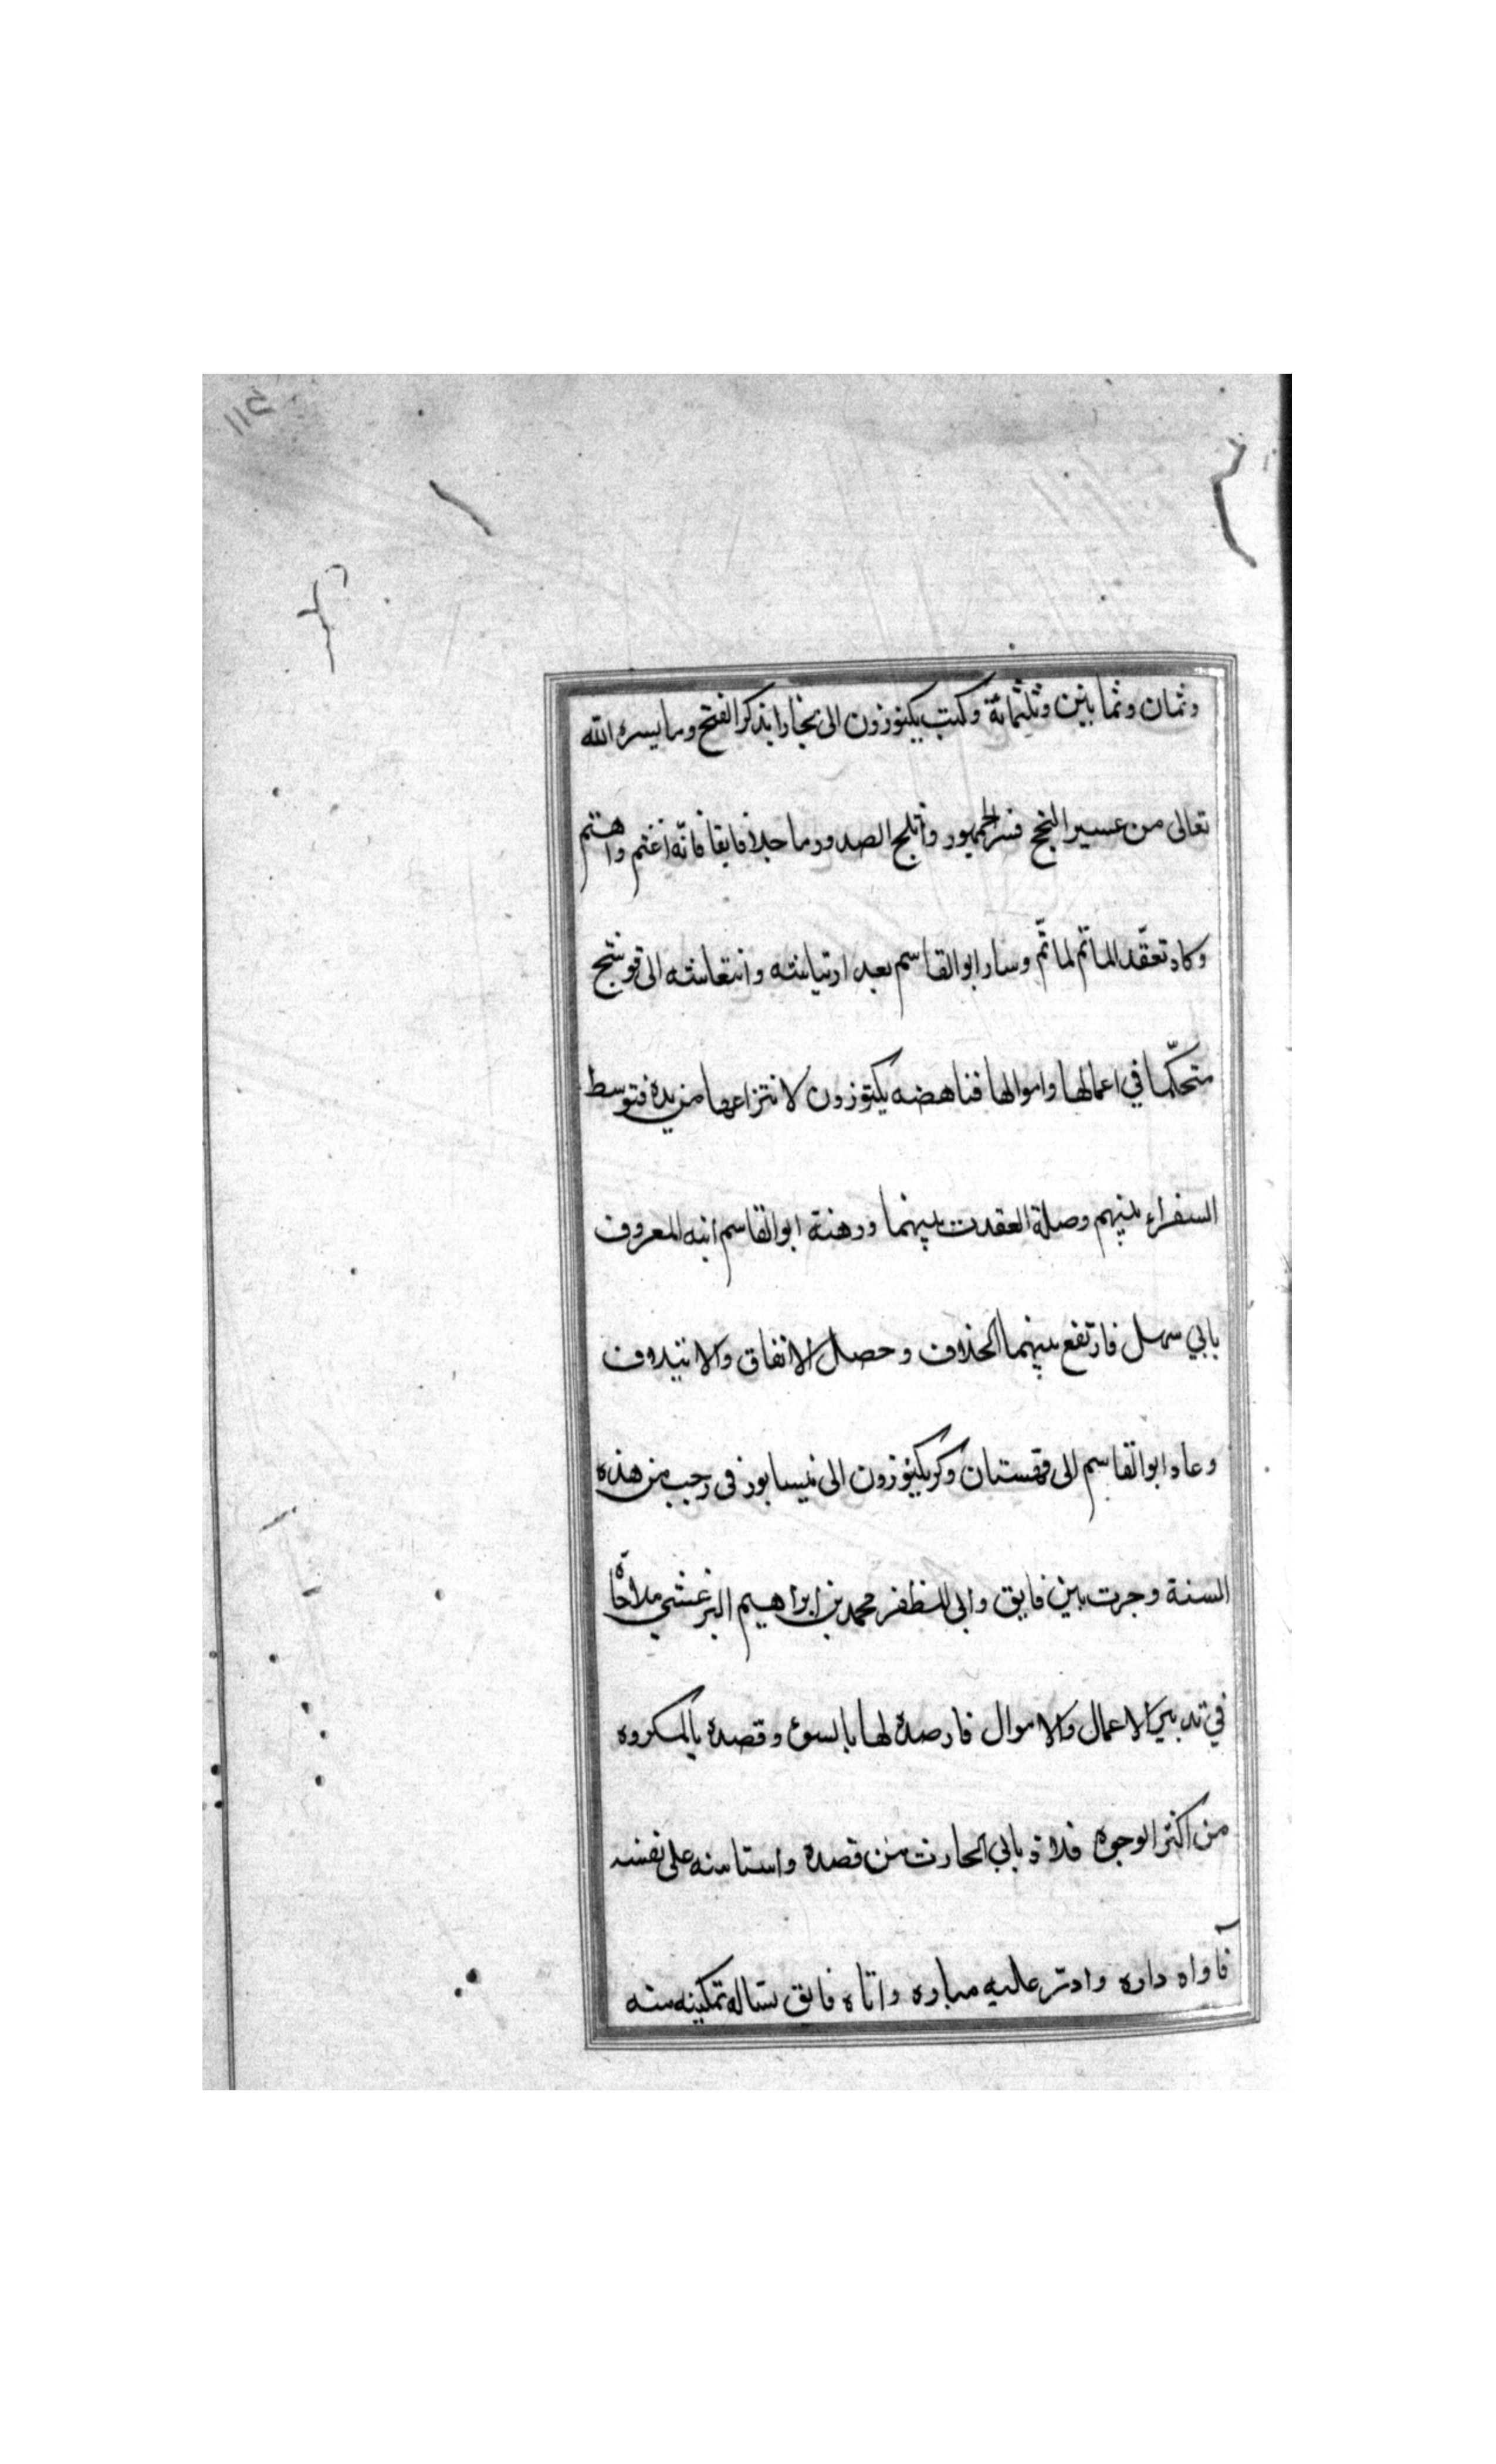 وثمان وثمابنين وثلثمائة وكتب بكتوزون الى بخارا بذكر الفتح وما يسره الله
تعالى من عسير النجح فسر الجمهور واثلج الصدور ما خلا فايقا فانّه اغتم واهتم
وكاد تعقّد الماتم لما تّم وسار ابو القاسم بعد ارتياشه وانتعاشه الى قوشنج
متحكّما في اعمالها واموالها فناهضه بكتوزون لانتزاعها من يده فتوسط
السفراء بينهم وصلة العقدت بينهما ورهنة ابو القاسم ابنه المعروف
بابي سهل فارتفع بينهما الخلاف وحصل الاتفاق والايتلاف
وعاد ابو القاسم الى قهستان وكر بكتوزون الى نيسابور فى رجب من هذه
السنة وجرت بين فايق وابى المظفر محمد بن ابراهيم البرغشي ملاحاّة
في تدبير الاعمال والاموال فارصده لها بالسوء وقصده بالمكروه
من اكثر الوجوه فلاذ بابي الحارث من قصده واستامنه على نفسه
فآواه داره وادتر عليه مباره واتاه فايق يساله تمكينه منه